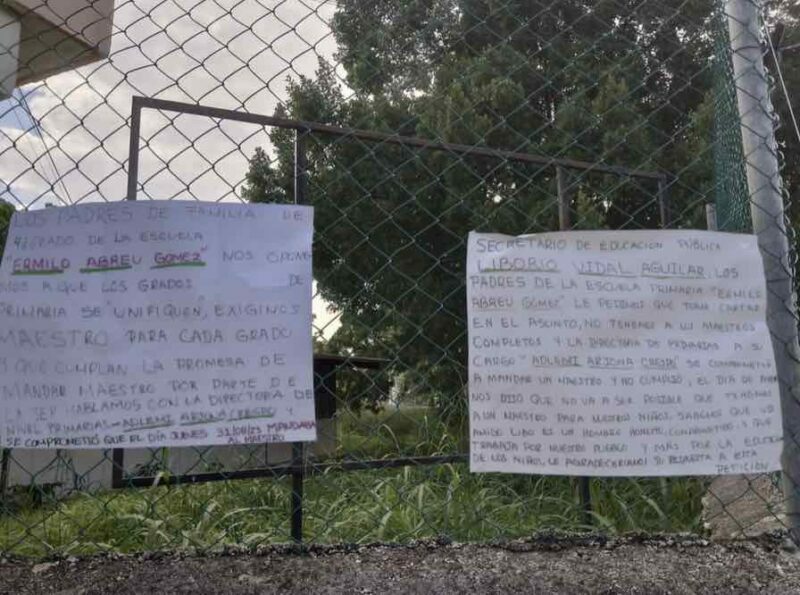 LOS PADRES DE FAMILIA DE
GRADO DE LA ESCUELA
"ERMILO ABREU GOMEZ" NOS OPONE
MOS A QUE LOS GRADOS DE
PRIMARIA SE "UNIFIQUEN", EXIGIMOS
MAESTRO PARA CADA GRADO
Y QUE CUMPLAN LA PROMESA DE
MANDAR MAESTRO POR PARTE DE
LA SEP HABLAMOS CON LA DIRECTORA DE
NIVEL PRIMARIAS - ADLEMI ARJONA CRESPO Y
SE COMPROMETIÓ QUE EL DÍA JUEVES 31/08/23 MANDABA
AL MAESTRO
SECRETARIO DE EDUCACION PUBLICA
LIBORIO VIDAL AGUILAR. LOS
PADRES DE LA ESCUELA PRIMARIA "ERMILO
ABREU GOMEZ" LE PEDIMOS QUE TOME CARTAS
EN EL ASUNTO, NO TENEMOS A LOS MAESTROS
COMPLETOS Y LA DIRECTORA DE PRIMARIAS A SU
CARGO "ADLEMI ARJONA CRESPO" SE COMPROMETIÓ
A MANDAR UN MAESTRO Y NO CUMPLIO, EL DIA DE
NOS DIJO QUE NO VA A SER POSIBLE QUE TENGAMOS
A UN MAESTRO PARA NUESTROS NIÑOS, SABEMOS QUE UD
AMIGO LIBO ES UN HOMBRE HONESTO, COMPROMETIDO Y QUE
TRABAJA POR NUESTRO PUEBLO Y MÁS POR LA
DE LOS NIÑOS, LE AGRADECERIAMOS SU RESPUESTA A ESTA
PETICIÓN